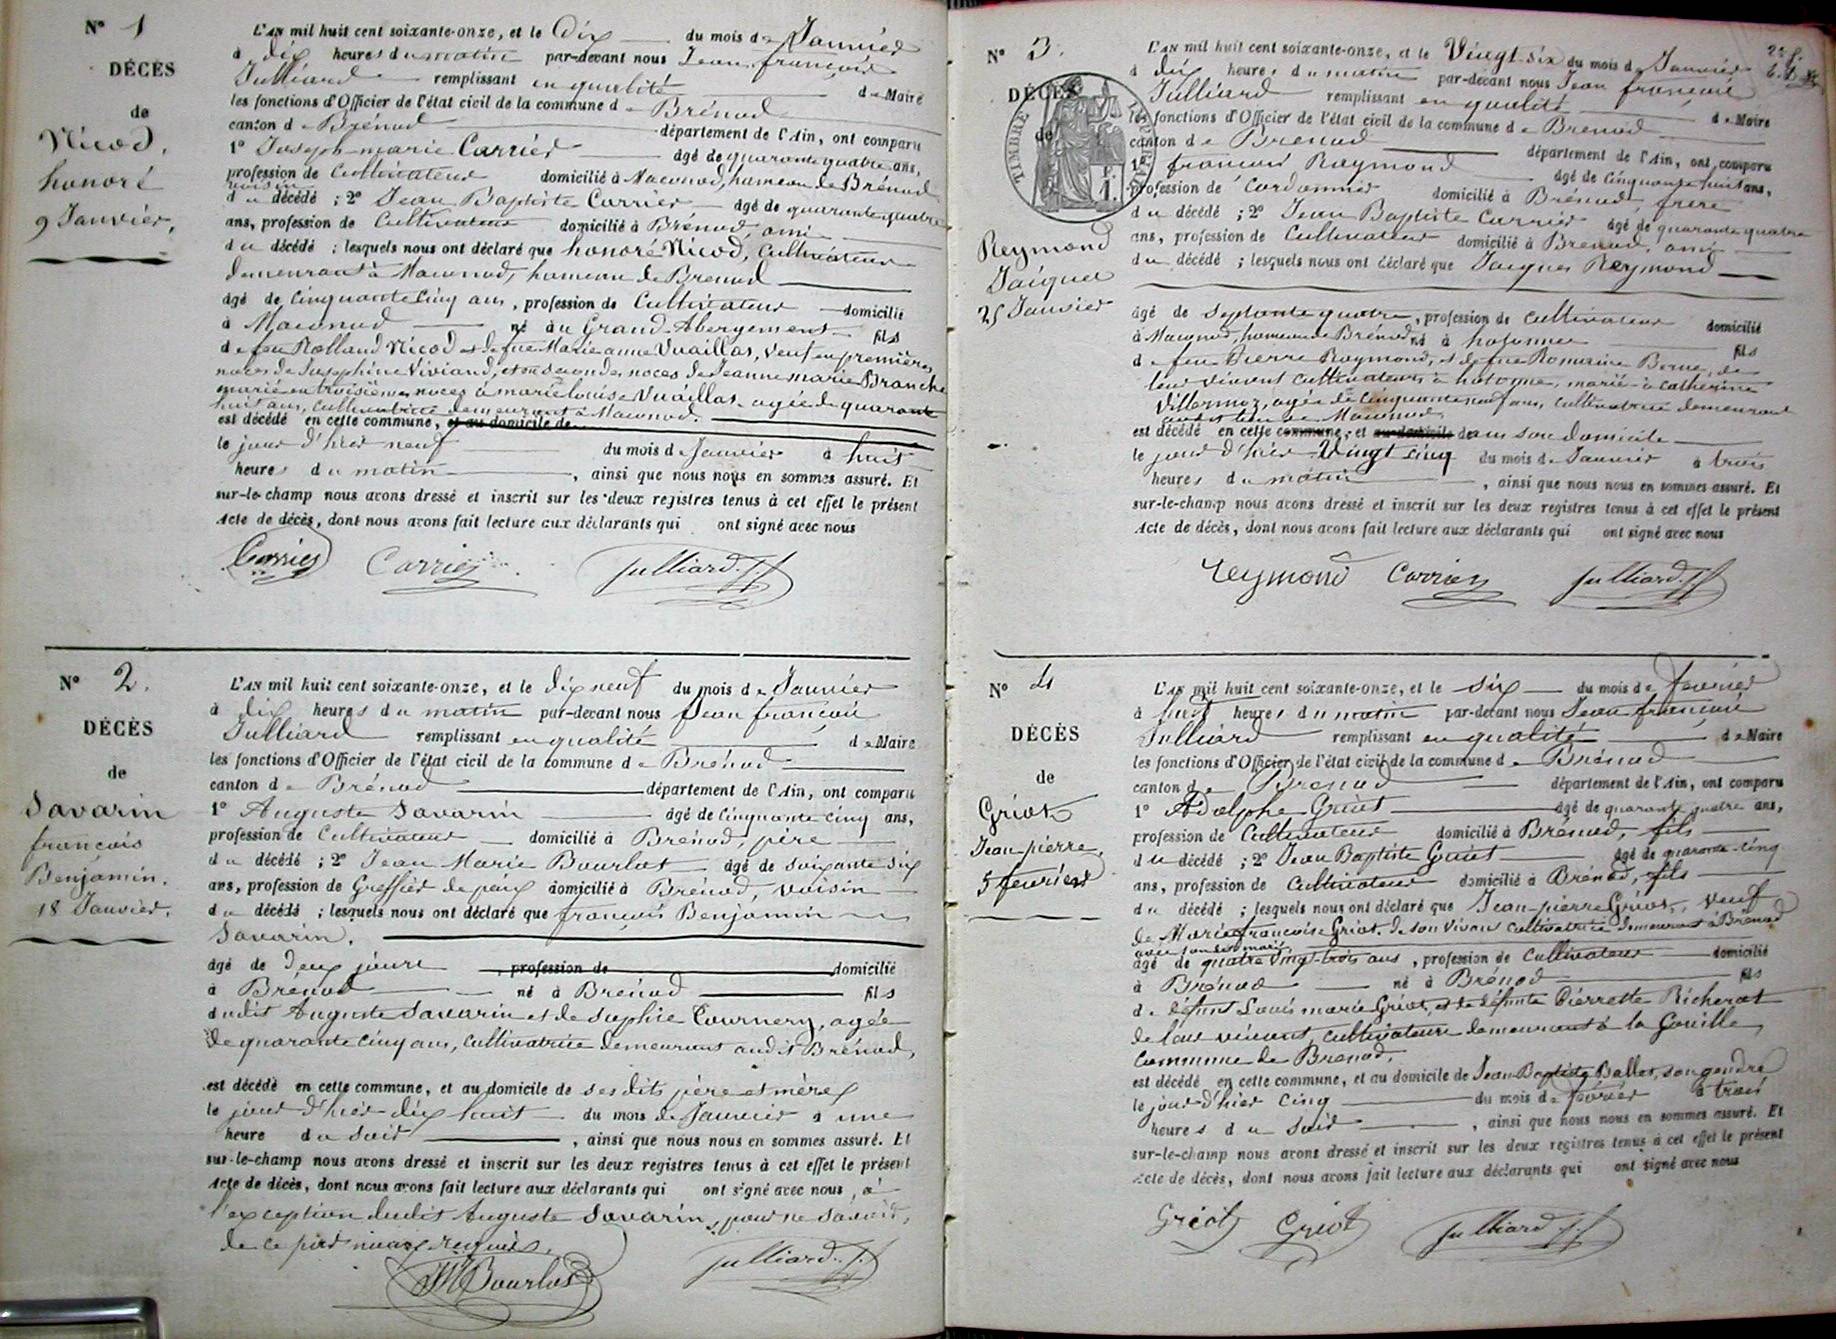 N° 1
DÉCÈS
de
Nicod,
honoré
9 Janvier,
L'AN mil huit cent soixante-onze, et le Dix du mois de Janvier
à dix heures du matin par-devant nous Jean françois
Julliard remplissant en qualité de Maire
les fonctions d'Officier de l'état civil de la commune de Brénod
canton de Brénod département de l'Ain, ont comparu
1° Joseph marie Carrier âgé de quarante quatre ans,
profession de Cultivateur domicilié à Maconod, hameau de Brénod
voisin
du décédé ; 2° Jean Baptiste Carrier âgé de quarante quatre
ans, profession de Cultivateur domicilié à Brénod, ami
du décédé ; lesquels nous ont déclaré que honoré Nicod, Cultivateur
demeurant à Maconod, hameau de Brenod
âgé de Cinquante Cinq ans, profession de Cultivateur domicilié
à Maconod né au Grand-Abergement fils
de feu Rolland Nicod et de feue Marie anne Vuaillas, veuf en premières
noces de Josephine Viviand, et en secondes noces de Jeanne marie Branche
marié en troisièmes noces à marie louise Vuaillas, agée de quarante
huit ans, cultivatrice demeurant à Maconod.
est décédé en cette commune, et au domicile de
le jour d'hier neuf du mois de Janvier à huit
heures du matin, ainsi que nous nous en sommes assuré. Et
sur-le-champ nous avons dressé et inscrit sur les deux registres tenus à cet effet le présent
Acte de décès, dont nous avons fait lecture aux déclarants qui ont signé avec nous
Carrier Carrier Julliard J. f.
N° 2.
DÉCÈS
de
Savarin
françois
Benjamin.
18 Janvier.
L'AN mil huit cent soixante-onze, et le dix neuf du mois de Janvier
à dix heures du matin par-devant nous Jean françois
Julliard remplissant en qualité de Maire
les fonctions d'Officier de l'état civil de la commune de Brénod
canton de Brénod département de l'Ain, ont comparu
1° Auguste Savarin âgé de Cinquante cinq ans,
profession de Cultivateur domicilié à Brénod, père
du décédé ; 2° Jean Marie Bourlot âgé de soixante six
ans, profession de Greffier de paix domicilié à Brénod, voisin
du décédé ; lesquels nous ont déclaré que françois Benjamin
Savarin.
âgé de deux jours, profession de domicilié
à Brenod né à Brénod fils
dudit Auguste Savarin et de Sophie Tournery, agée
de quarante cinq ans, cultivatrice demeurant audit Brénod,
est décédé en cette commune, et au domicile de ses dits père et mère
le jour d'hier dix huit du mois de Janvier à une
heure du soir, ainsi que nous nous en sommes assuré. Et
sur-le-champ nous avons dressé et inscrit sur les deux registres tenus à cet effet le présent
Acte de décès, dont nous avons fait lecture aux déclarants qui ont signé avec nous, à
l'exception dudit Auguste Savarin, pour ne savoir,
de ce par nous requis.
JM Bourlot Julliard J. f.
N° 3.
DÉCÈS
de
TIMBRE IMPÉRIAL
Reymond
Jacques
25 Janvier
L'AN mil huit cent soixante-onze, et le Vingt-six du mois de Janvier
à dix heures du matin par-devant nous Jean françois
Julliard remplissant en qualité de Maire
les fonctions d'Officier de l'état civil de la commune de Brenod
canton de Brenod département de l'Ain, ont comparu
1° françois Raymond âgé de Cinquante huit ans,
profession de Cordonnier domicilié à Brénod, frère
du décédé ; 2° Jean Baptiste Carrier âgé de quarante quatre
ans, profession de Cultivateur domicilié à Brénod, ami
du décédé ; lesquels nous ont déclaré que Jacques Reymond
âgé de septante quatre, profession de Cultivateur domicilié
à Maconod, hameau de Brénod né à hotonne fils
de feu Pierre Raymond, et de feue Romaine Borne, de
leur vivant cultivateurs à hotonne, marié à Catherine
Villermoz, agée de Cinquante neuf ans, cultivatrice demeurant
Maconod,
est décédé en cette commune, et au domicile dans son domicile
le jour d'hier Vingt cinq du mois de Janvier à trois
heures du matin, ainsi que nous nous en sommes assuré. Et
sur-le-champ nous avons dressé et inscrit sur les deux registres tenus à cet effet le présent
Acte de décès, dont nous avons fait lecture aux déclarants qui ont signé avec nous
reymond Carrier Julliard J. f.
N° 4
DÉCÈS
de
Griot
Jean pierre.
5 fevrier
L'AN mil huit cent soixante-onze, et le six du mois de fevrier
à huit heures du matin par-devant nous Jean françois
Julliard remplissant en qualité de Maire
les fonctions d'Officier de l'état civil de la commune de Brénod
canton de Brenod département de l'Ain, ont comparu
1° Adolphe Griot âgé de quarante quatre ans,
profession de Cultivateur domicilié à Brenod, fils
du décédé ; 2° Jean Baptiste Griot âgé de quarante-cinq
ans, profession de Cultivateur domicilié à Brénod, fils
du décédé ; lesquels nous ont déclaré que Jean-pierre Griot, veuf
de Marie françoise Griot, de son vivant cultivatrice demeurant à Brénod
avec son dit mari,
âgé de quatre vingt-trois ans, profession de Cultivateur domicilié
à Brénod né à Brénod fils
de défunt Louis marie Griot, et de défunte Pierrette Richerot
de leur vivant, cultivateurs demeurant à la Gouille,
Commune de Brenod.
est décédé en cette commune, et au domicile de Jean Baptiste Ballet, son gendre
le jour d'hier Cinq du mois de février à trois
heures du soir, ainsi que nous nous en sommes assuré. Et
sur-le-champ nous avons dressé et inscrit sur les deux registres tenus à cet effet le présent
Acte de décès, dont nous avons fait lecture aux déclarants qui ont signé avec nous
Griot Griot Julliard J. f.